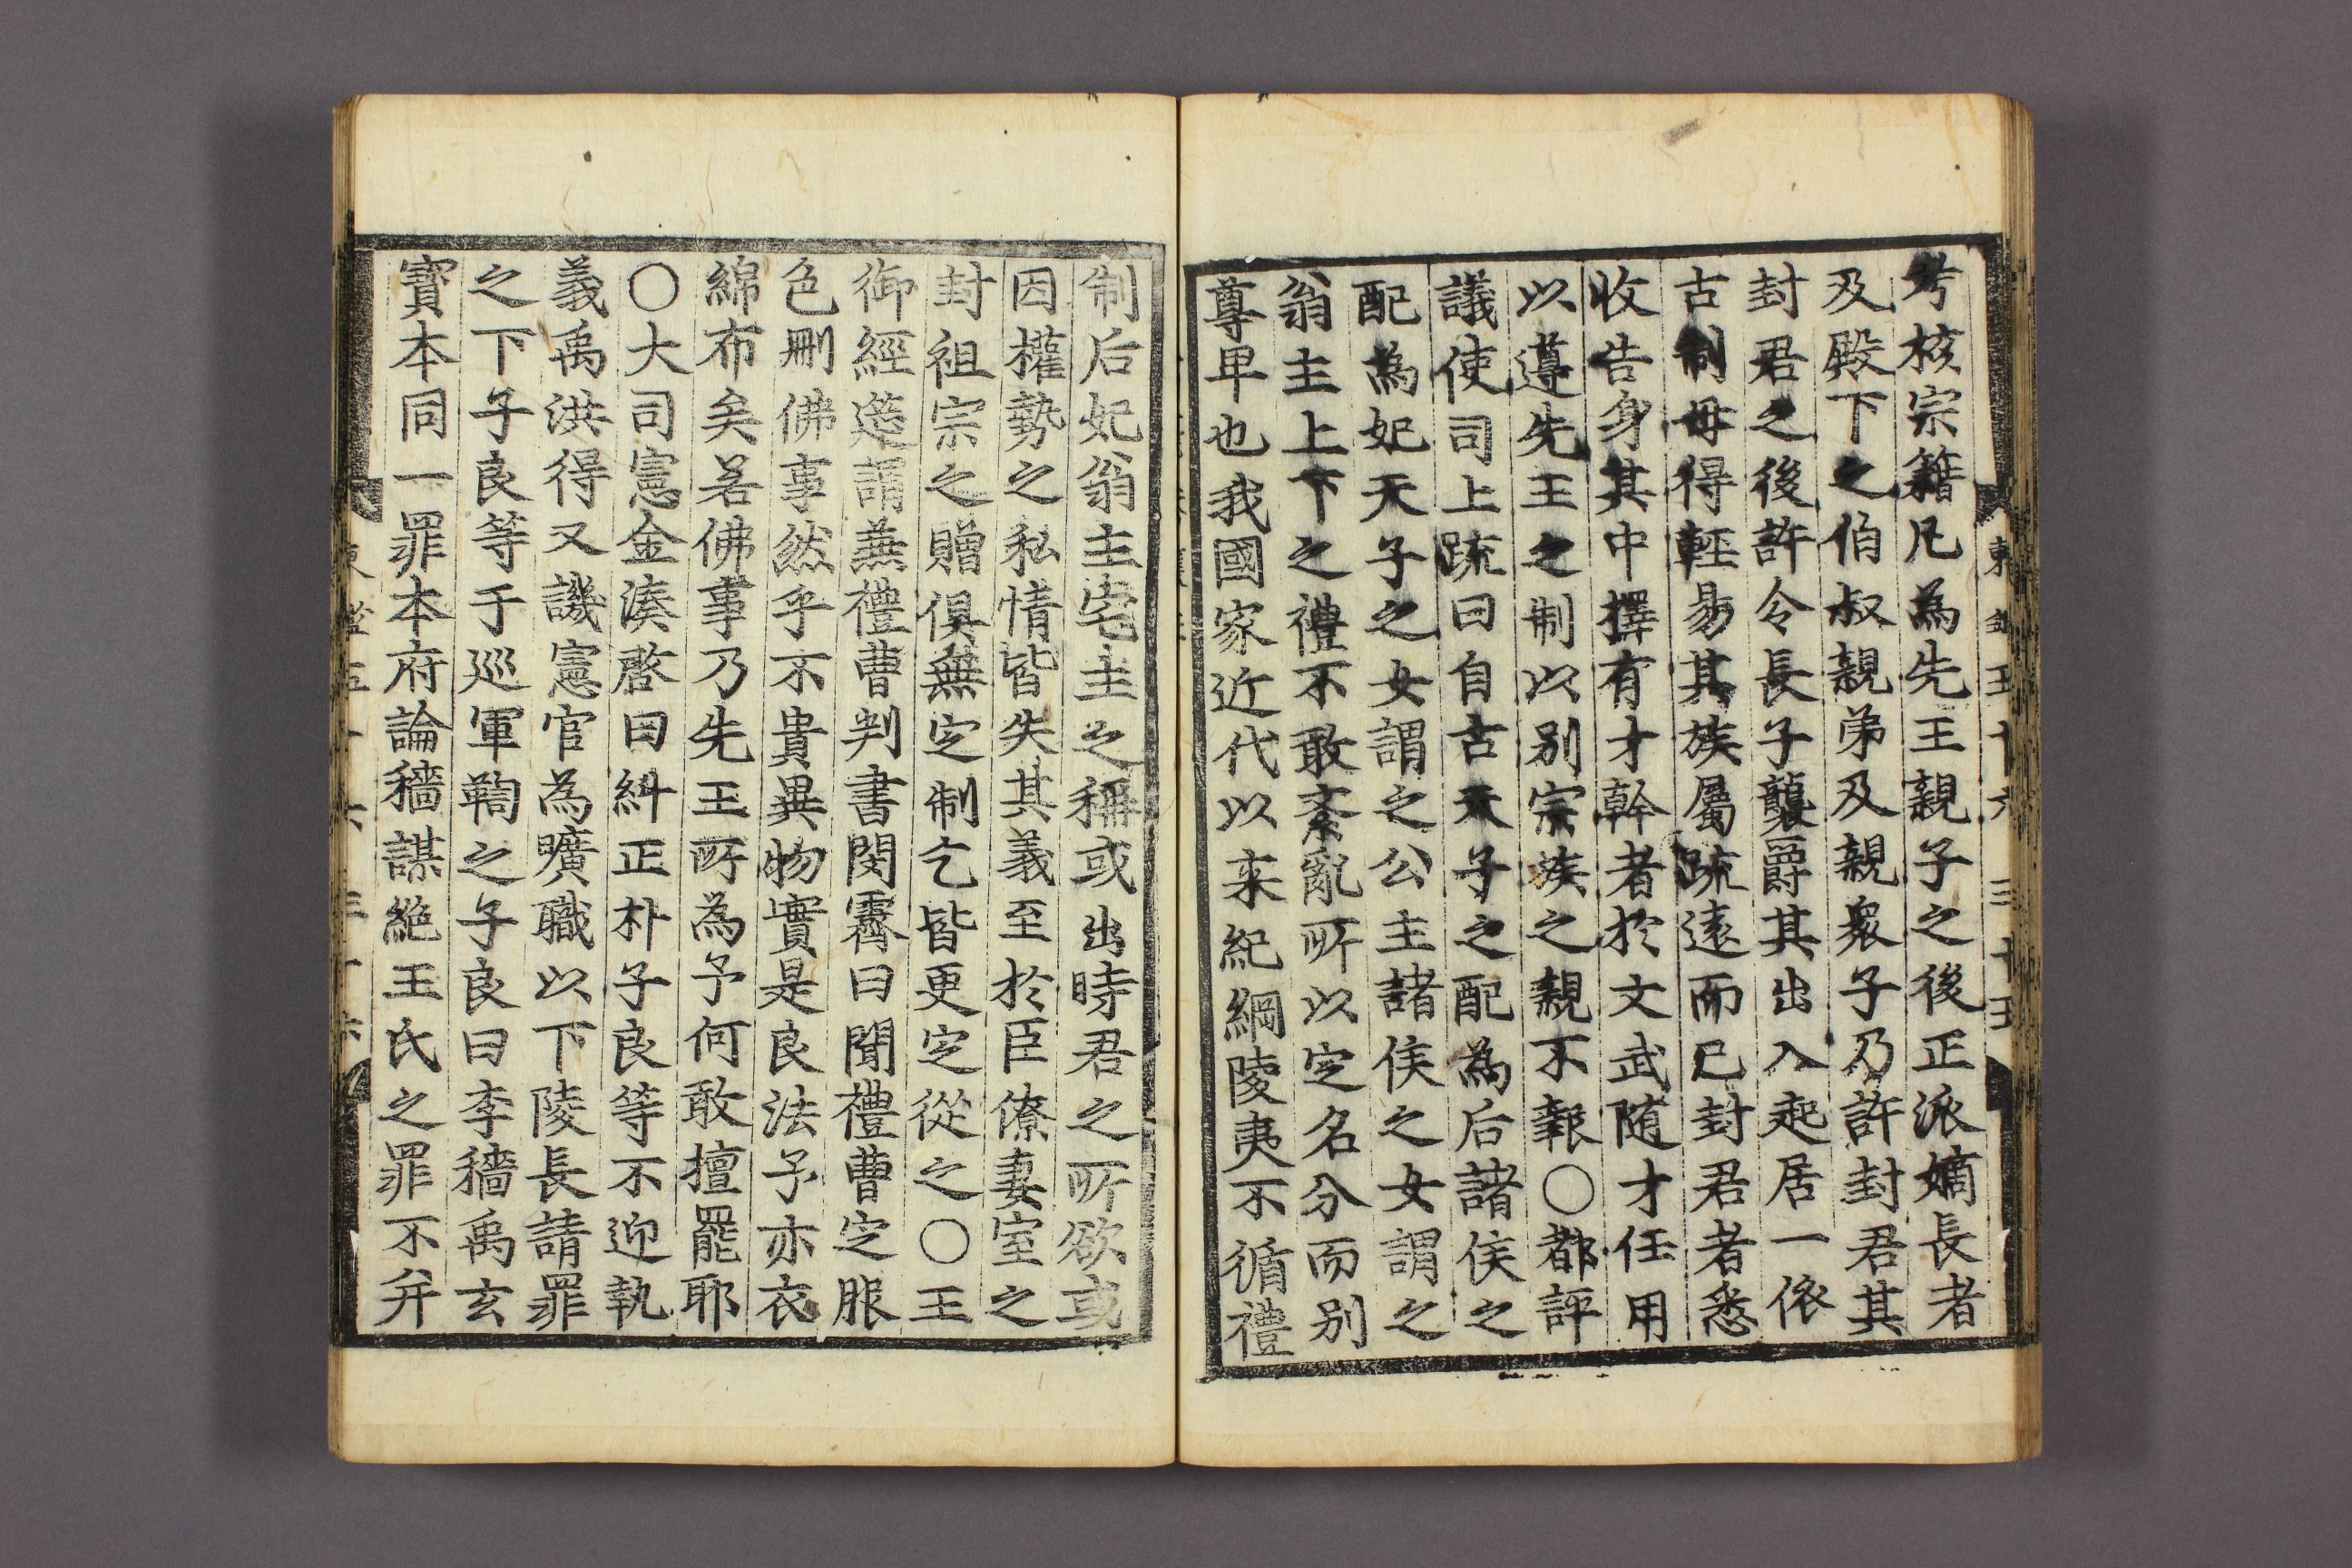 考核宗籍凡為先王親子之後正派嫡長者
及殿下之伯叔親弟及親衆子乃許封君其
封君之後許令長子襲爵其出入起居一依
古制毋得輕易其族屬䟽遠而已封君者悉
收告身其中擇有才幹者於文武随才任用
以遵先王之制以别宗族之親不報○都評
議使司上䟽曰自古天子之配為后諸侯之
配為妃天子之女謂之公主諸侯之女謂之
翁主上下之禮不敢紊亂所以定名分而别
尊卑也我國家近代以来紀綱陵夷不循禮
制后妃翁主宅主之稱或出時君之所欲或
因權勢之私情皆失其義至於臣僚妻室之
封祖宗之贈俱無定制乞皆更定從之○王
御經筵謂兼禮曹判書閔霽曰聞禮曹定服
色删佛事然乎不貴異物實是良法予亦衣
綿布矣若佛事乃先王所為予何敢擅罷耶
○大司憲金湊啓曰糾正朴子良等不迎執
義禹洪得又譏憲官為曠職以下陵長請罪
之下子良等于巡軍鞫之子良曰李穡禹玄
寳本同一罪本府論穡謀絶王氏之罪不并
東鑑五十六 三十五